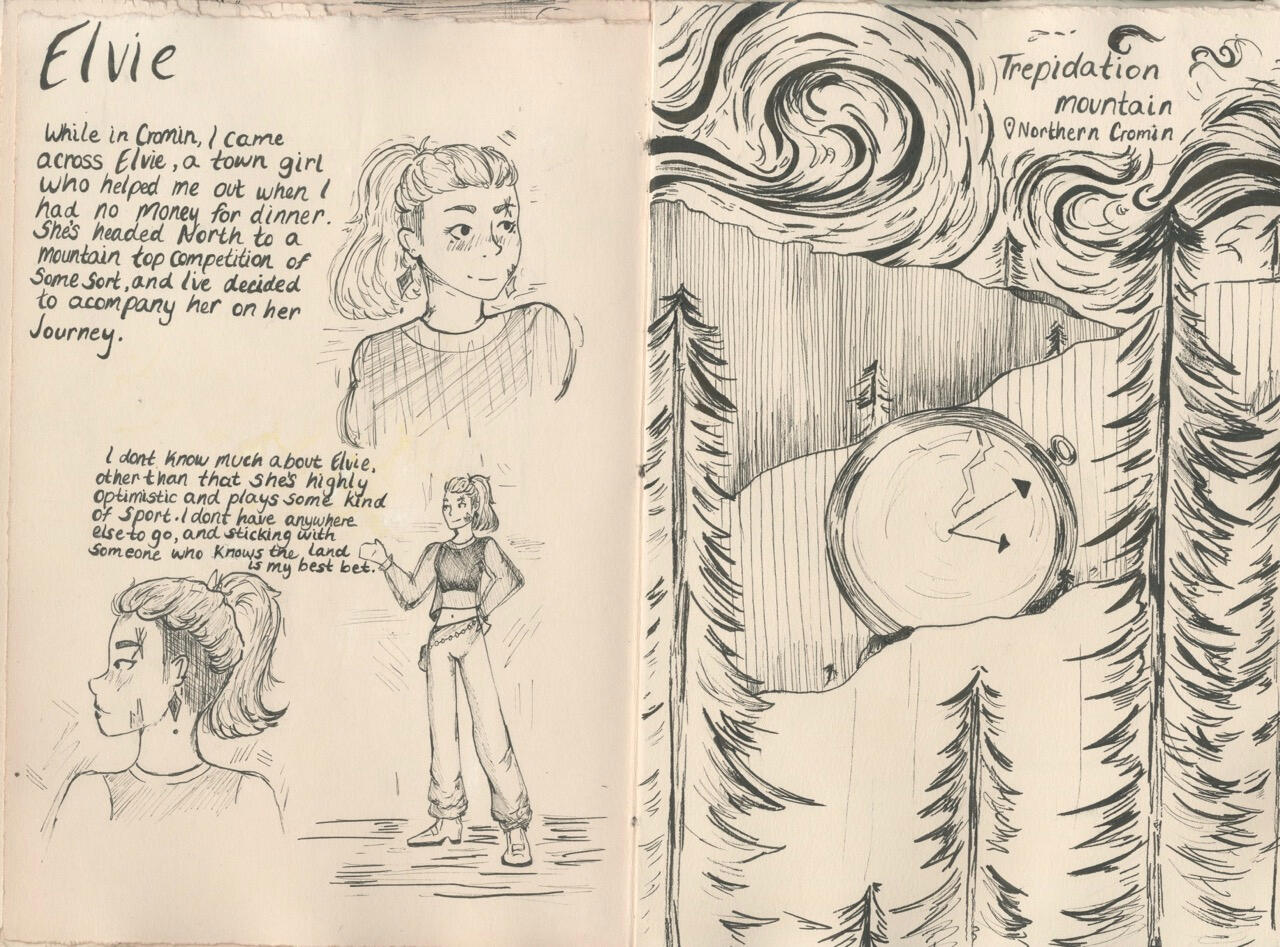 Elvie
While in Cromin, I came
across Elvie, a town girl
who helped me out when I
had no money for dinner.
She's headed North to a
mountain top competition of
some sort, and I've decided
to acompany her on her
Journey.
I dont know much about Elvie,
other than that she's highly
optimistic and plays some kind
of sport. I dont have anywhere
else to go, and sticking with
someone who knows the land
is my best bet.
Trepidation
mountain
Northern Cromin